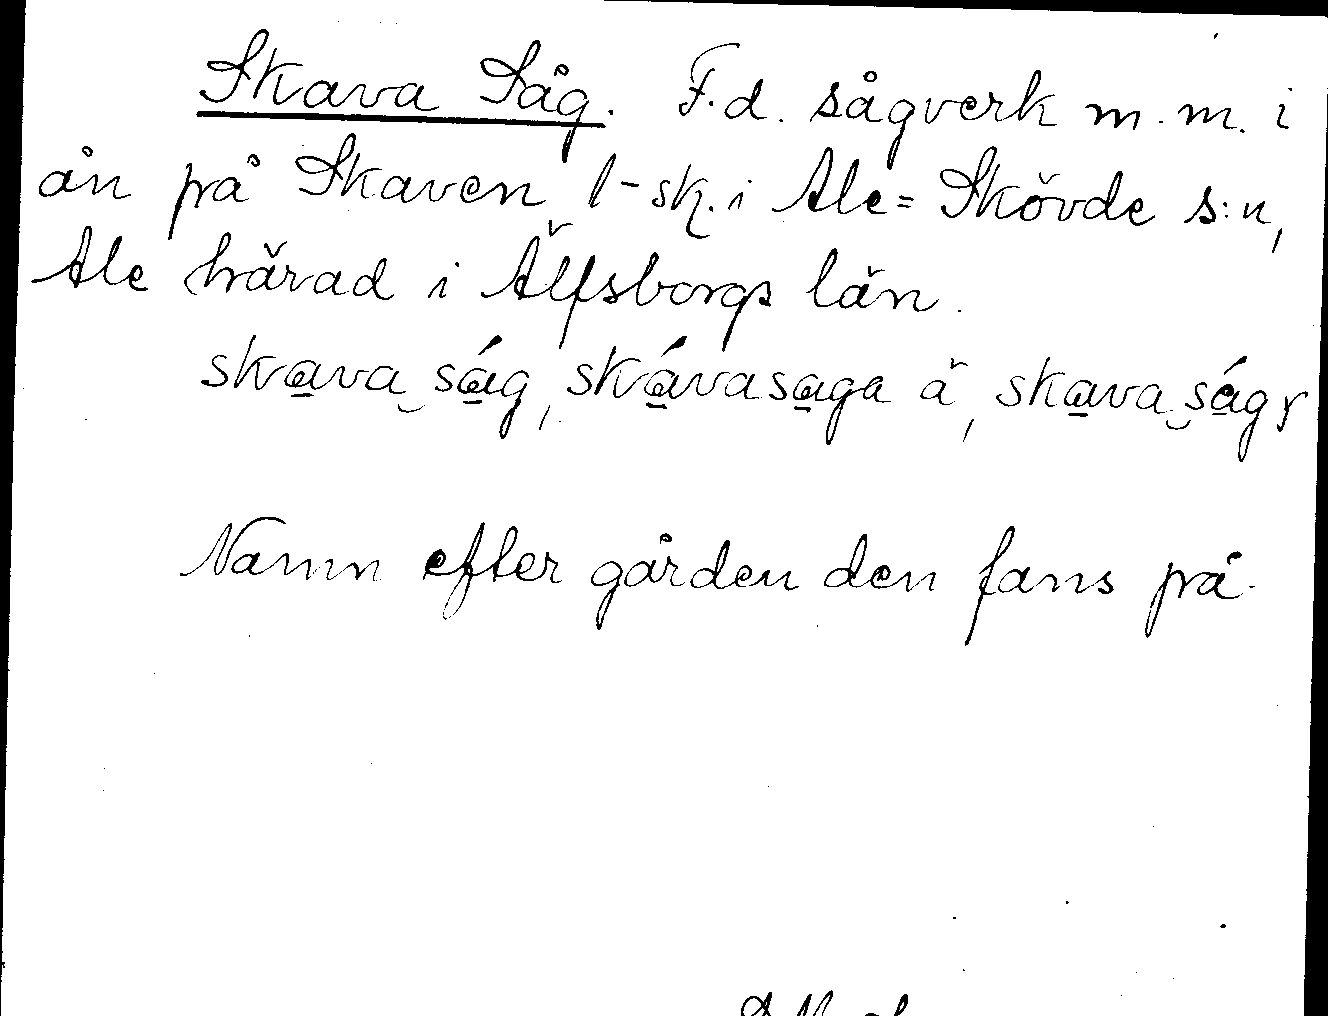 Skava Såg. F.d. sågverk m.m. i
ån på Skaven l-sk. i Ale=Skövde s:n,
Ale härad i Älfsborgs län.
skava såg, skávasaga ä, skava ságr
Namn efter gården den fans på.